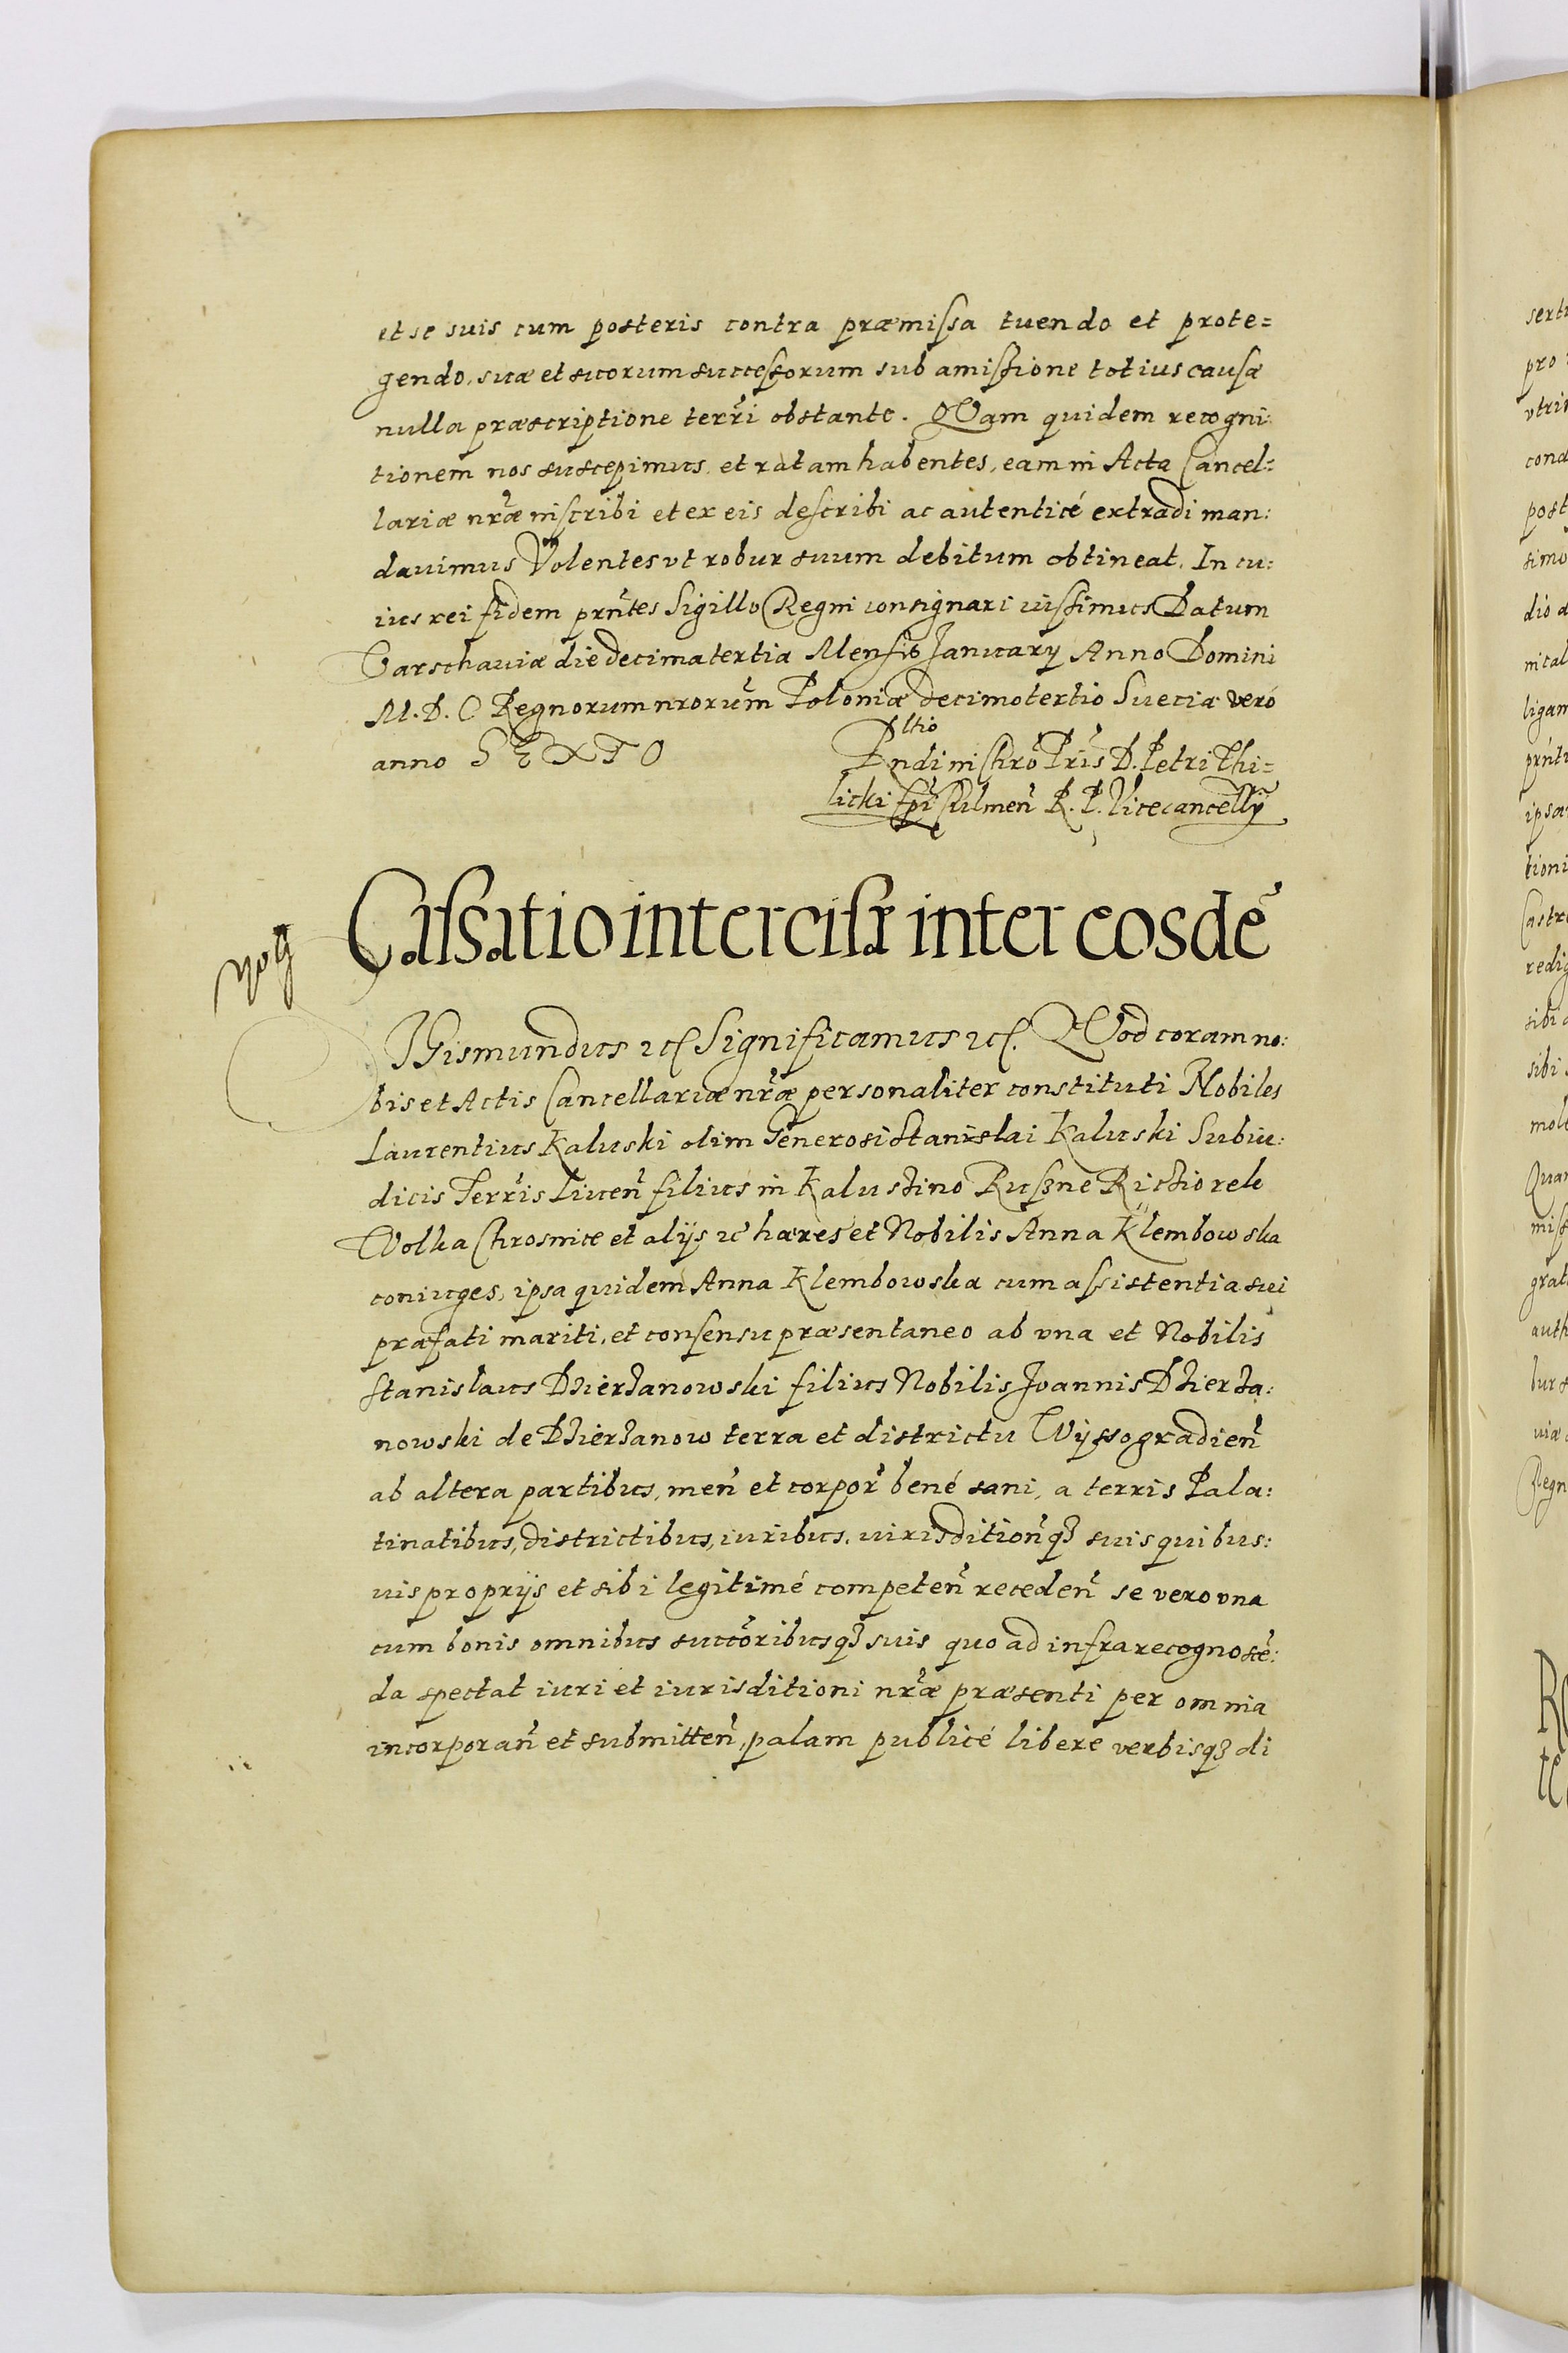 et se suis cum posteris contra præmissa tuendo et prote=
gendo, suæ et suorum successorum sub amissione totius causæ
nulla præscriptione terr̃i obstante. QVam quidem recogni:
tionem nos suscepimus, et ratam habentes, eam in Acta Cancel=
lariæ nr̃æ inscribi et ex eis describi ac autenticé extradi man:
dauimus Volentes vt robur suum debitum obtineat. In cu:
ius rei fidem prñtes Sigillo Regni consignari iussimus Datum
Varschauiæ die decima tertia Mensis Januarij Anno Domini
M.D.C Regnorum nrorum̃ Poloniæ decimotertio Sueciæ veró
anno SEXTO
Rltio
Rndi in Chrõ Pris̃ D. Petri Thi=
licki Epĩ Culmen̓ R. P. Vicecancellÿ
Cassatio intercisæ inter eosdẽ
SIGismundus ꝛcſ Significamus ꝛcſ. QVod coram no:
bis et Actis Cancellariæ nr̃æ personaliter constituti Nobiles
Laurentius Kaluski olim Generosi Stanislai Kaluski Subiu:
dicis Terr̃is Liuen̓ filius in Kaluszino Ruszne Ricziorek
Wolka Chrosnice et alijs ꝛc̓ hæres et Nobilis Anna Klembowska
coniuges, ipsa quidem Anna Klembowska cum assistentia sui
præfati mariti, et consensu præsentaneo ab vna et Nobilis
Stanislaus Dzierzanowski filius Nobilis Joannis Dzierza:
nowski de Dzierzanow terra et districtu Wyssogradien̓
ab altera partibus, men̓ et corpor̓ bené sani, a terris Pala:
tinatibus, districtibus, iuribus, iurisdition̓qȝ suis quibus:
uis proprijs et sibi legitimé competen̓ receden̓ se vero vna
cum bonis omnibus succõribusqȝ suis quo ad infra recognoscẽ:
da spectat iuri et iurisditioni nr̃æ præsenti per omnia
incorporan̓ et submitten̓, palam publicé libere verbisqȝ di